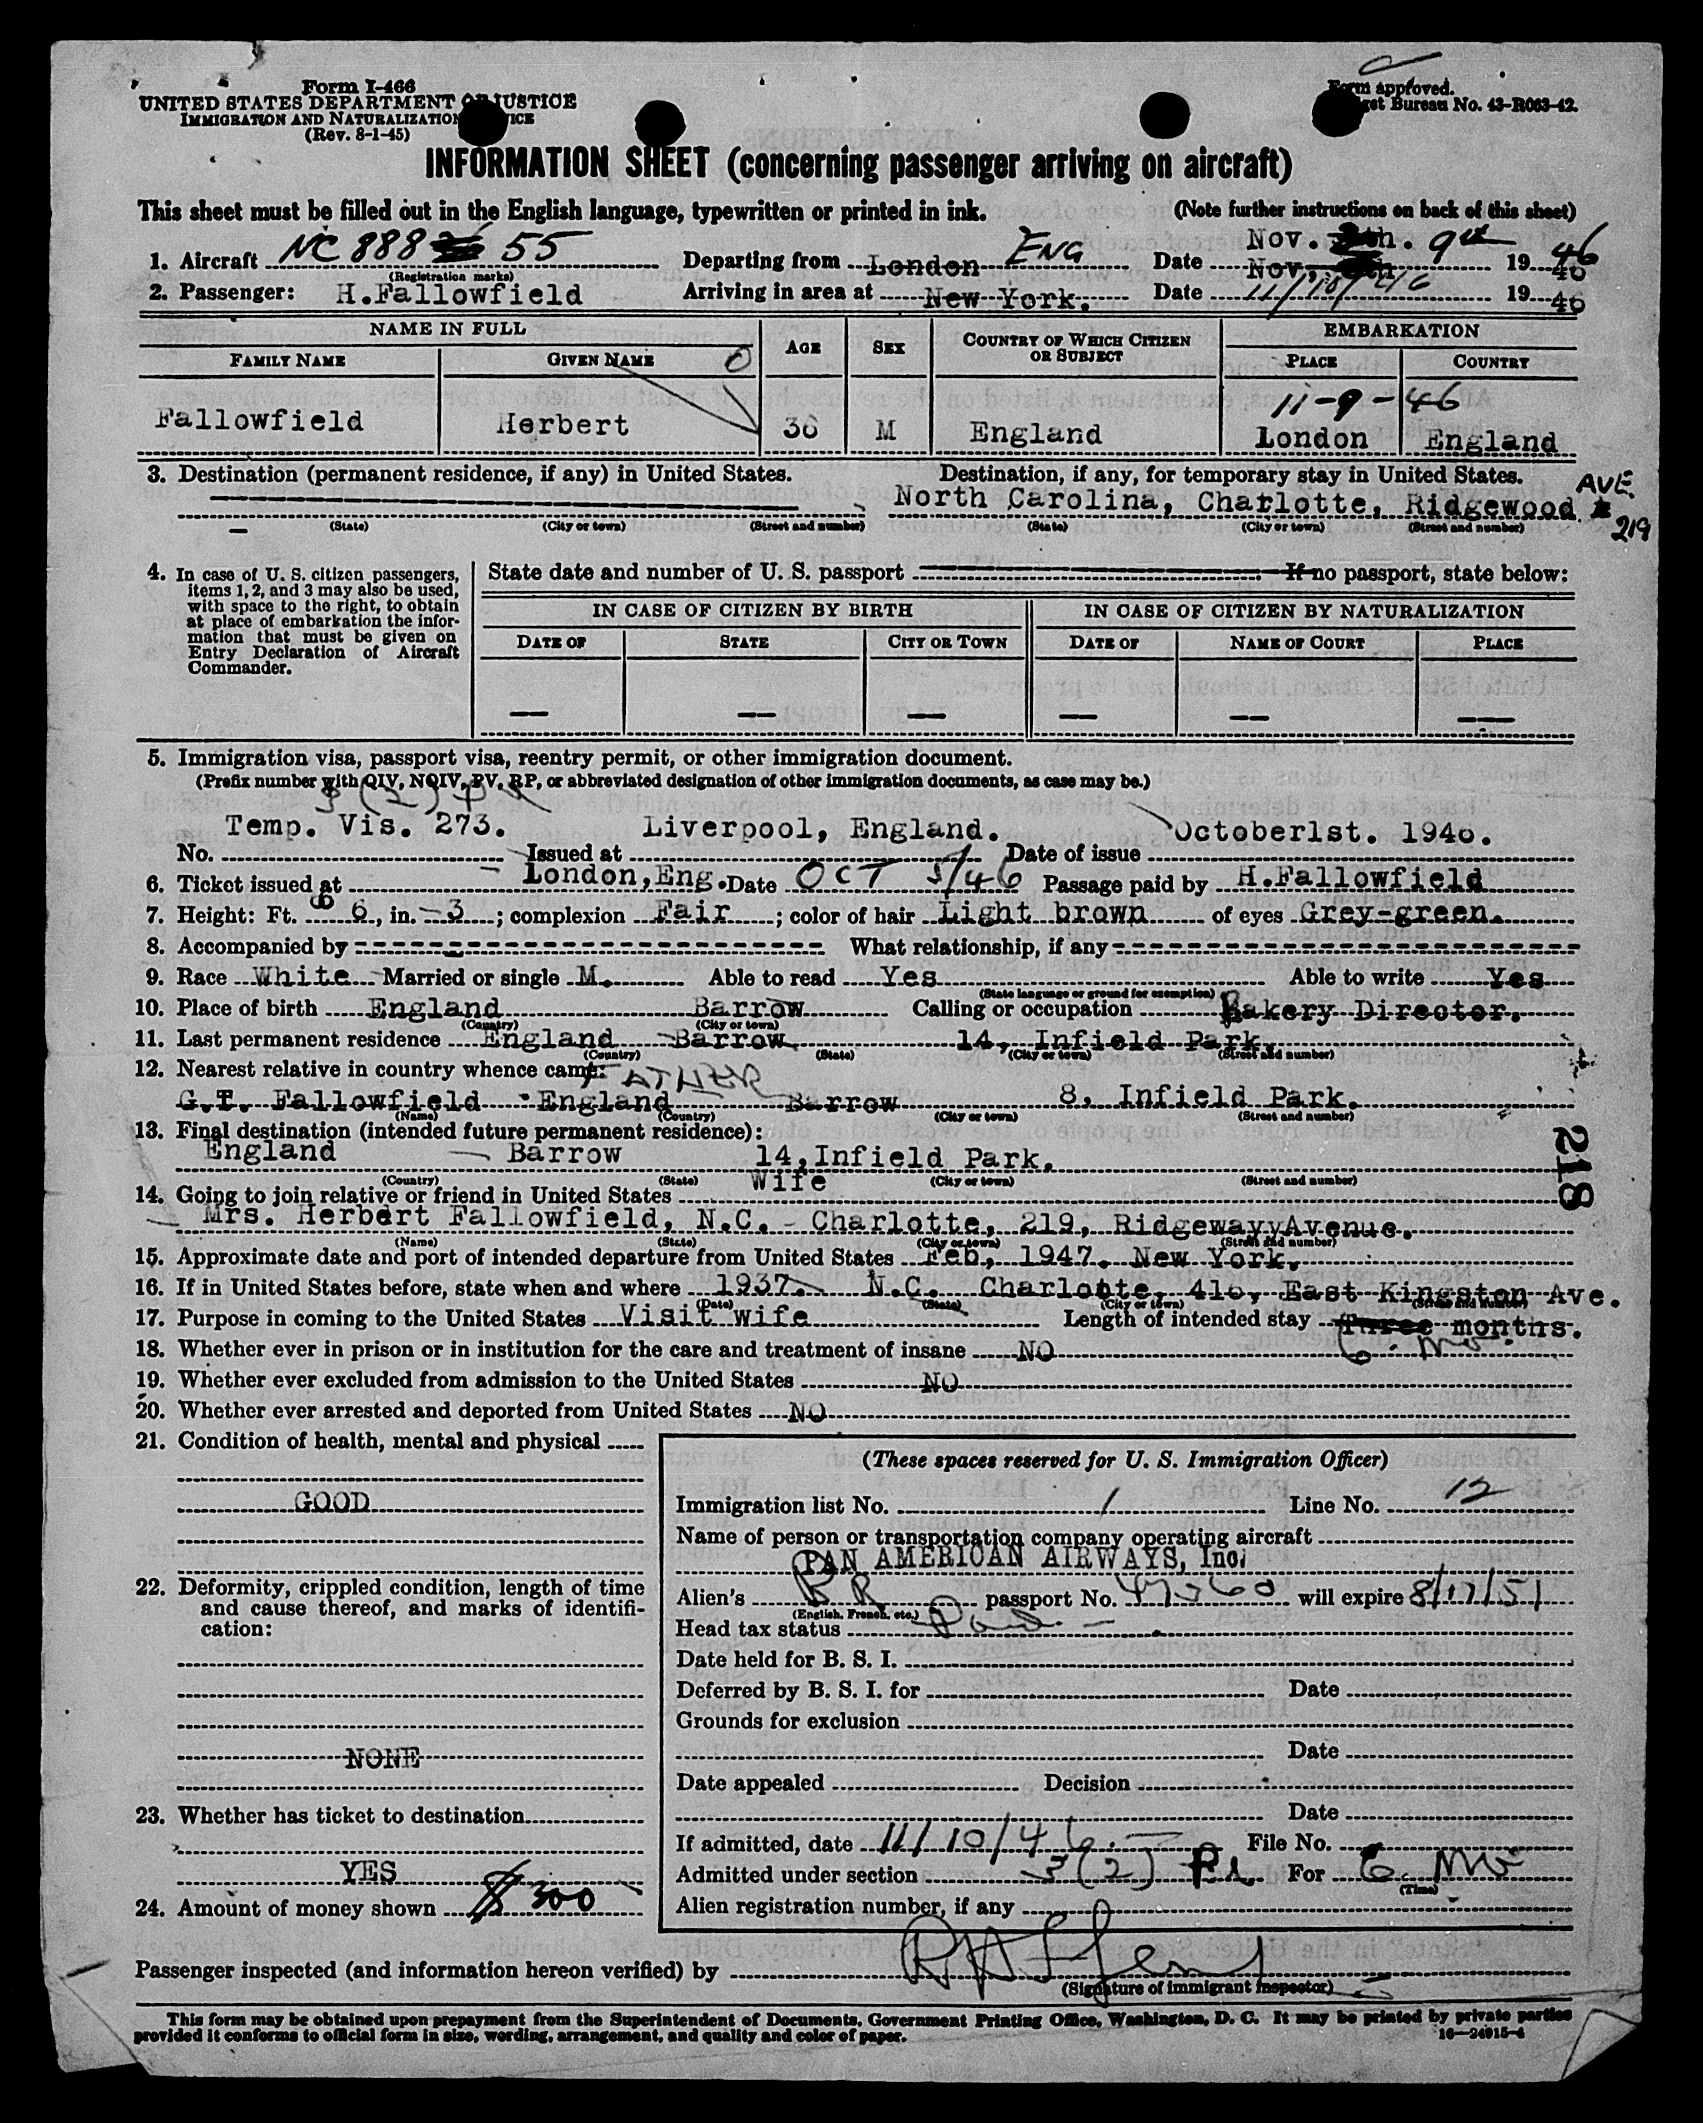 Form I-466
UNITED STATES DEPARTMENT OF JUSTICE
IMMIGRATION AND NATURALIZATION SERVICE
(Rev. 8-1-45)
Form approved.
Budget Bureau No. 43-R063-42.
INFORMATION SHEET (concerning passenger arriving on aircraft)
This sheet must be filled out in the English language, typewritten or printed in ink. (Note further instructions on back of this sheet)
Nov. 9th
1. Aircraft NC 888 55 Departing from London ENG Date Nov, 19 46
(Registration marks)
2. Passenger: H.Fallowfield Arriving in area at New York. Date 11/10/46 19 46
NAME IN FULL AGE SEX COUNTRY OF WHICH CITIZEN OR SUBJECT EMBARKATION
FAMILY NAME GIVEN NAME PLACE COUNTRY
11-9-46
Fallowfield Herbert 36 M England London England
3. Destination (permanent residence, if any) in United States. Destination, if any, for temporary stay in United States.
North Carolina, Charlotte, Ridgewood AVE. 219
(State) (City or town) (Street and number) (State) (City or town) (Street and number)
4. In case of U. S. citizen passengers, items 1, 2, and 3 may also be used, with space to the right, to obtain at place of embarkation the information that must be given on Entry Declaration of Aircraft Commander.
State date and number of U. S. passport If no passport, state below:
IN CASE OF CITIZEN BY BIRTH IN CASE OF CITIZEN BY NATURALIZATION
DATE OF STATE CITY OR TOWN DATE OF NAME OF COURT PLACE
— — — — — —
5. Immigration visa, passport visa, reentry permit, or other immigration document.
(Prefix number with QIV, NQIV, PV, RP, or abbreviated designation of other immigration documents, as case may be.)
3(2)
Temp. Vis. 273. Liverpool, England. October1st. 1946.
No. Issued at Date of issue
6. Ticket issued at London,Eng. Date OCT 5/46 Passage paid by H.Fallowfield
7. Height: Ft. 6, in. 3; complexion Fair; color of hair Light brown of eyes Grey-green.
8. Accompanied by What relationship, if any
9. Race White Married or single M. Able to read Yes Able to write Yes
(State language or ground for exemption)
10. Place of birth England Barrow Calling or occupation Bakery Director.
(Country) (City or town)
11. Last permanent residence England Barrow 14, Infield Park.
(Country) (State) (City or town) (Street and number)
12. Nearest relative in country whence came: FATHER
G.T. Fallowfield England Barrow 8, Infield Park.
(Name) (Country) (City or town) (Street and number)
13. Final destination (intended future permanent residence):
England Barrow 14,Infield Park.
(Country) (State) (City or town) (Street and number)
218
14. Going to join relative or friend in United States Wife
Mrs. Herbert Fallowfield, N.C. Charlotte, 219, RidgewayyAvenue.
(Name) (State) (City or town) (Street and number)
15. Approximate date and port of intended departure from United States Feb, 1947. New York.
16. If in United States before, state when and where 1937. N.C. Charlotte, 416, East Kingston Ave.
(Date) (State) (City or town) (Street and number)
17. Purpose in coming to the United States Visit wife Length of intended stay Three months.
6. mo.
18. Whether ever in prison or in institution for the care and treatment of insane NO
19. Whether ever excluded from admission to the United States NO
20. Whether ever arrested and deported from United States NO
21. Condition of health, mental and physical
GOOD
22. Deformity, crippled condition, length of time and cause thereof, and marks of identification:
NONE
23. Whether has ticket to destination
YES
24. Amount of money shown $300
(These spaces reserved for U. S. Immigration Officer)
Immigration list No. 1 Line No. 12
Name of person or transportation company operating aircraft
PAN AMERICAN AIRWAYS, Inc.
Alien's BR passport No. will expire 8/17/51
(English, French, etc.)
Head tax status Paid
Date held for B. S. I.
Deferred by B. S. I. for Date
Grounds for exclusion
Date
Date appealed Decision
Date
If admitted, date 11/10/46. File No.
Admitted under section 3(2) For 6 Mos
(Time)
Alien registration number, if any
Passenger inspected (and information hereon verified) by
(Signature of immigrant inspector)
This form may be obtained upon prepayment from the Superintendent of Documents, Government Printing Office, Washington, D. C. It may be printed by private parties
provided it conforms to official form in size, wording, arrangement, and quality and color of paper. 16—24915-4